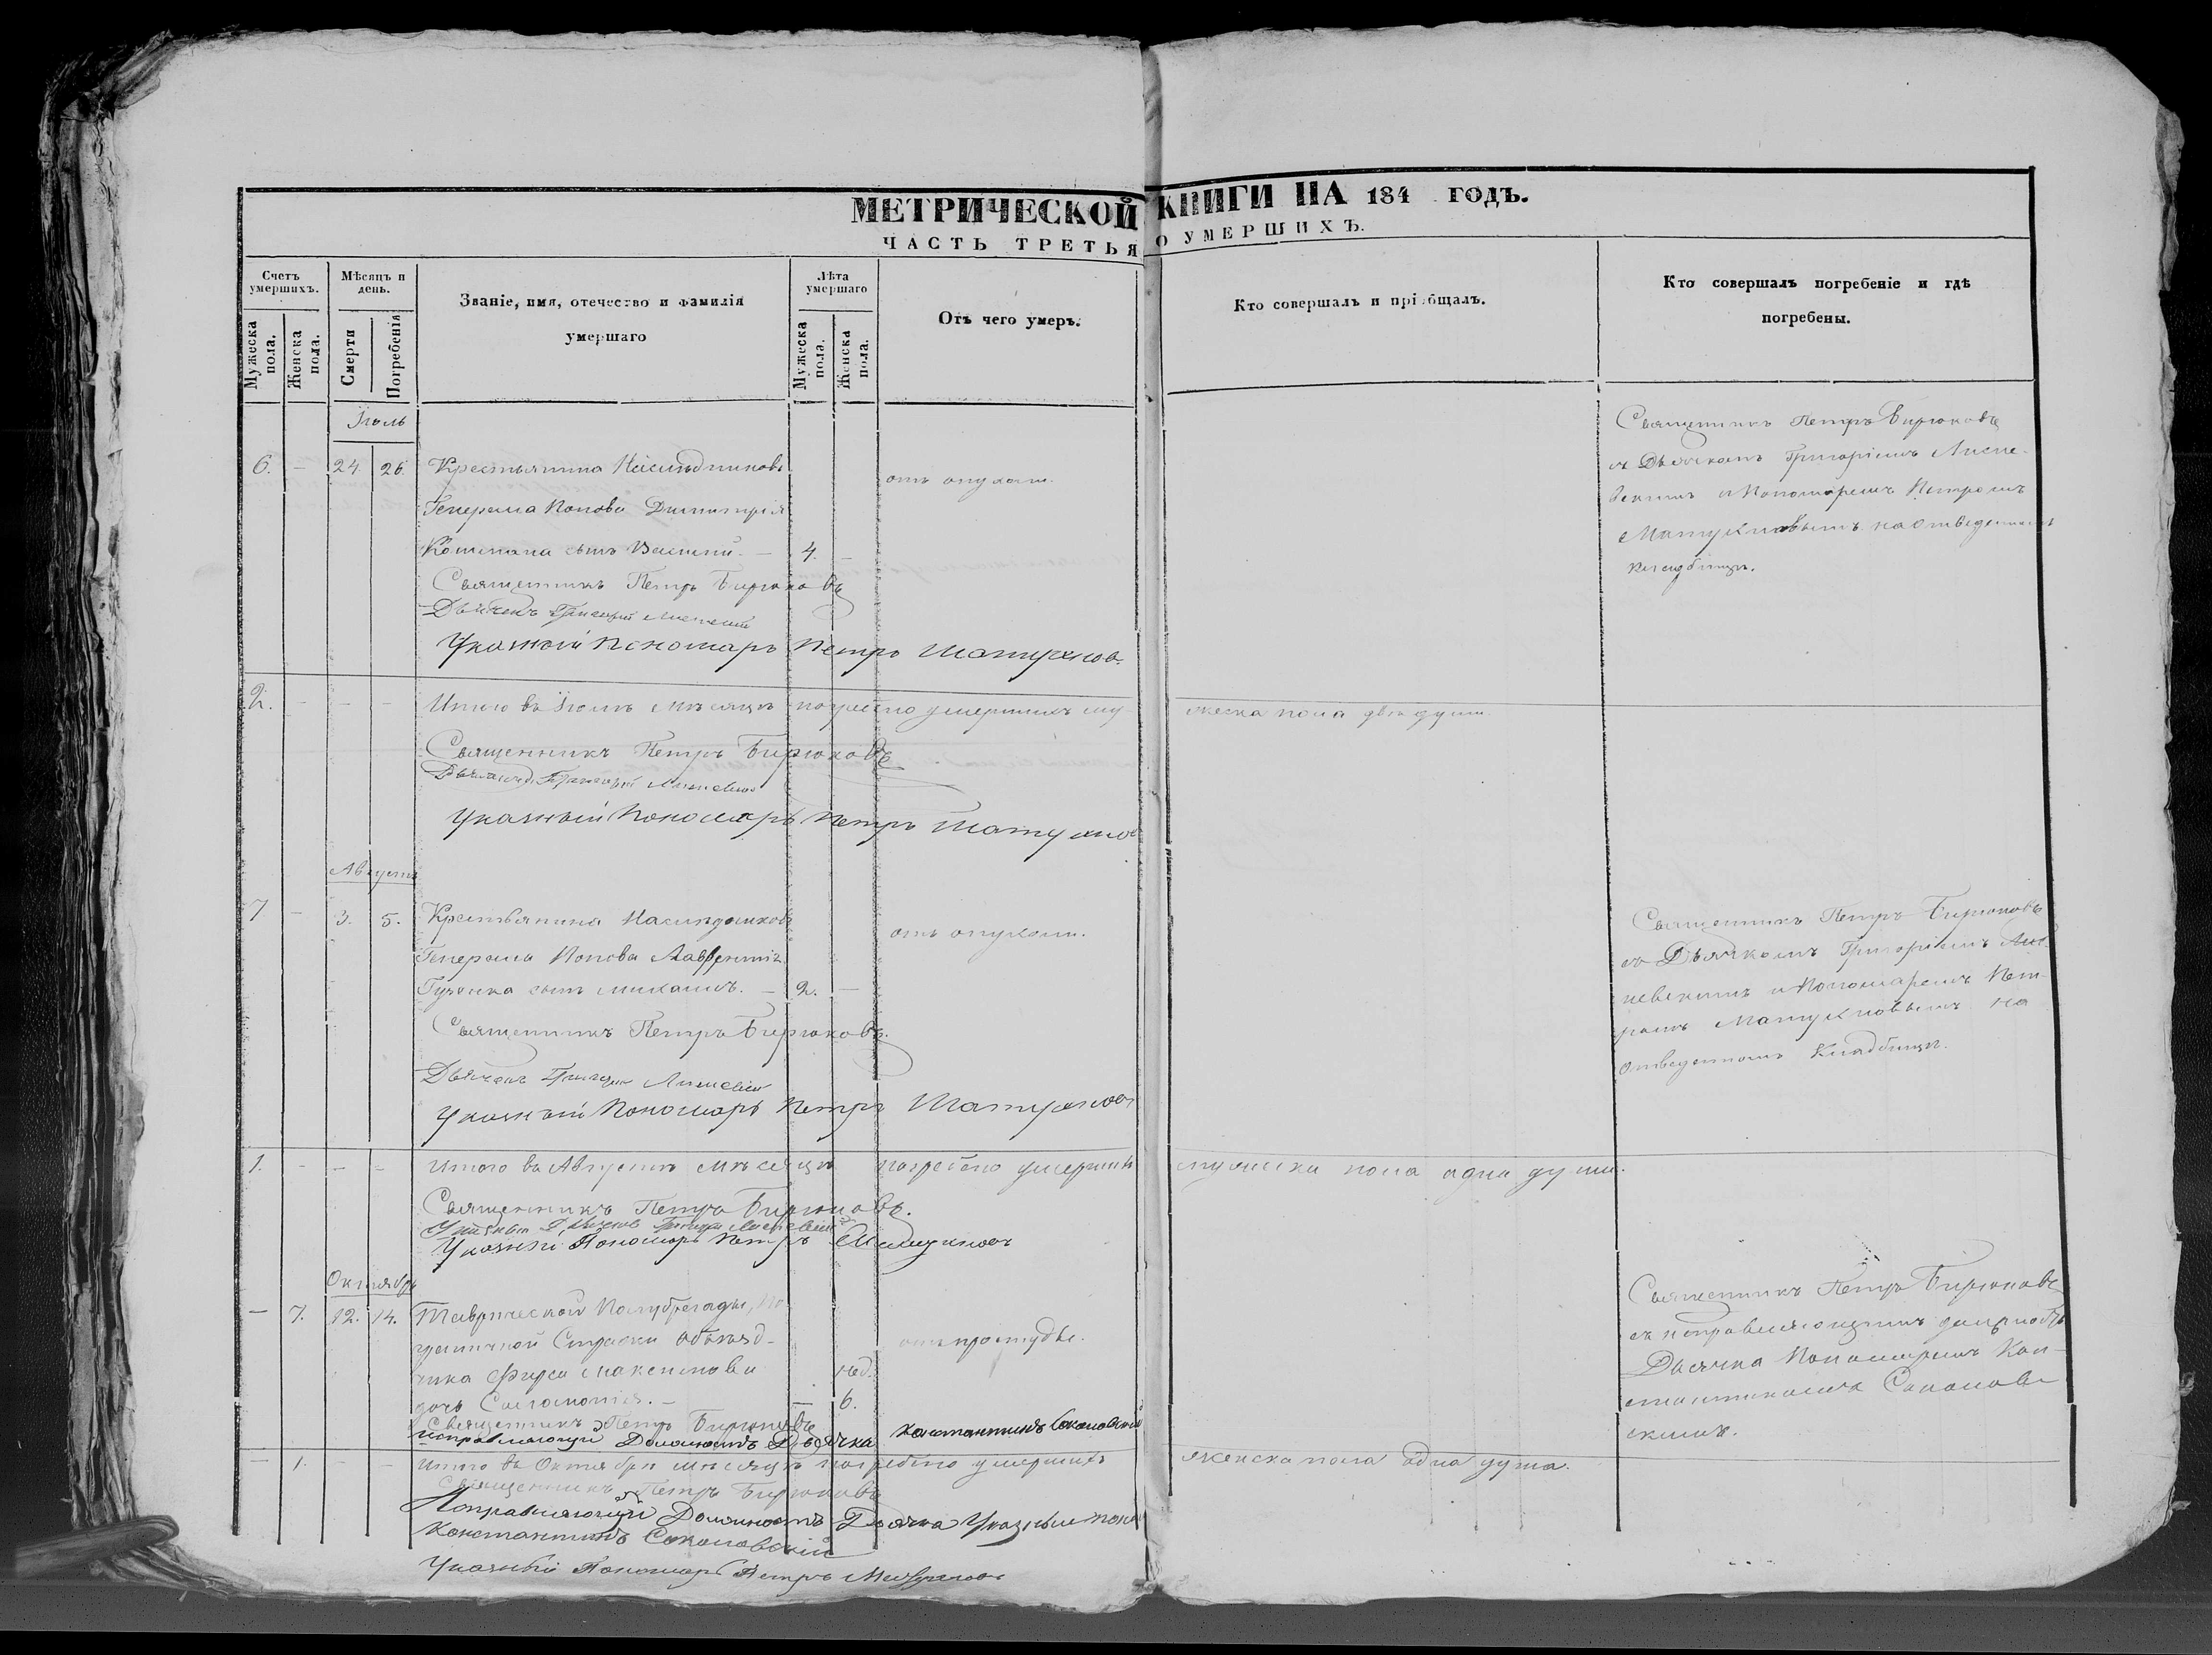 МЕТРИЧЕСКОЙ КНИГИ НА 184 ГОДЪ.
ЧАСТЬ ТРЕТЬЯ О УМЕРШИХЪ.
Счетъ умершихъ.
Мужеска пола.
Женска пола.
Мѣсяцъ и день.
Смерти
Погребенія
Званіе, имя, отечество и фамилія
умершаго
Лѣта умершаго
Мужеска пола.
Женска пола.
Отъ чего умеръ.
Кто совершалъ и пріобщалъ.
Кто совершалъ погребеніе и гдѣ
погребены.
Іюль
6. - 24. 26. Крестьянина Насиѣдниковъ
Генерала Попова Димитрія
сынъ Василій. - 4. -
отъ опухоли.
Священникъ Петръ Бирюковъ
съ Дьячкомъ Григоріемъ
и Пономаремъ Петромъ
на отведенномъ
кладбищѣ.
Священникъ Петръ Бирюковъ
Дьячекъ Григорій
Указный Пономарь Петръ
2. - - - Итого въ Іюлѣ мѣсяцѣ погребено умершихъ му-
жеска пола двѣ души.
Священникъ Петръ Бирюковъ
Дьячекъ Григорій
Указный Пономарь Петръ
Августъ
7 - 3. 5. Крестьянина Насиѣдниковъ
Генерала Попова Лаврентія
сынъ Михаилъ. - 2. -
отъ опухоли.
Священникъ Петръ Бирюковъ
съ Дьячкомъ Григоріемъ
и Пономаремъ Пет-
ромъ на
отведенномъ Кладбищѣ.
Священникъ Петръ Бирюковъ.
Дьячекъ Григорій
Указный Пономарь Петръ
1. - - - Итого въ Августѣ мѣсяцѣ погребено умершихъ
мужеска пола одна душа.
Священникъ Петръ Бирюковъ.
Указный Дьячекъ Григорій
Указный Пономарь Петръ
Октябрь
- 7. 12. 14. Таврической Полубригады, По-
граничной Стражи Объѣзд-
чика Фирса Максимова
дочь Соломонія. - - 6.
нед.
отъ простуды.
Священникъ Петръ Бирюковъ
съ исправляющимъ должность
Дьячка Пономаремъ Кон-
стантиномъ Соколов-
скимъ.
Священникъ Петръ Бирюковъ
Исправляющій Должность Дьячка Константинъ Соколовскій
- 1. - - Итого въ Октябрѣ мѣсяцѣ погребено умершихъ
женска пола одна душа.
Священникъ Петръ Бирюковъ
Исправляющій Должность Дьячка Указный
Константинъ Соколовскій
Указный Пономарь Петръ